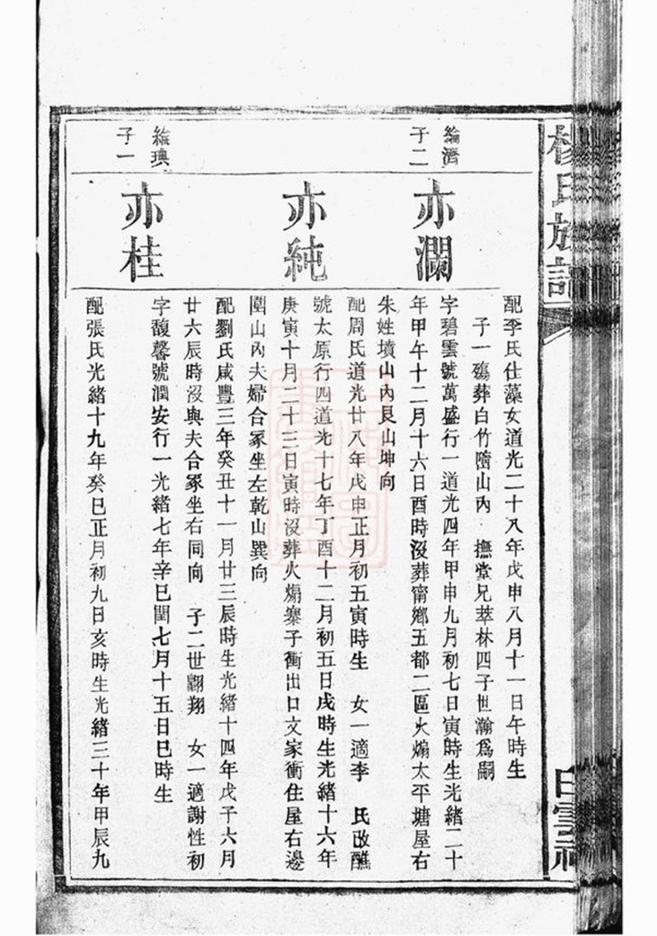 楊氏族譜
白雲祠
配李氏仕藻女道光二十八年戊申八月十一日午時生
子一殤葬白竹隴山內 撫堂兄萃林四子世瀚爲嗣
綸濟
子二
亦瀾
字碧雲號萬盛行一道光四年甲申九月初七日寅時生光緒二十
年甲午十二月十六日酉時沒葬甯鄉五都二區火煽太平塘屋右
朱姓墳山內艮山坤向
配周氏道光廿八年戊申正月初五寅時生 女一適李 民改醮
亦純
號太原行四道光十七年丁酉十二月初五日戌時生光緒十六年
庚寅十月二十三日寅時沒葬火煽寨子衝出口文家衝住屋右邊
圍山內夫婦合冢坐左乾山巽向
配劉氏咸豐三年癸丑十一月廿三辰時生光緒十四年戊子六月
廿六辰時沒與夫合冢坐右同向 子二世翺翔 女一適謝性初
綸璵
子一
亦桂
字馥馨號潤安行一光緒七年辛巳閏七月十五日巳時生
配張氏光緒十九年癸巳正月初九日亥時生光緒三十年甲辰九